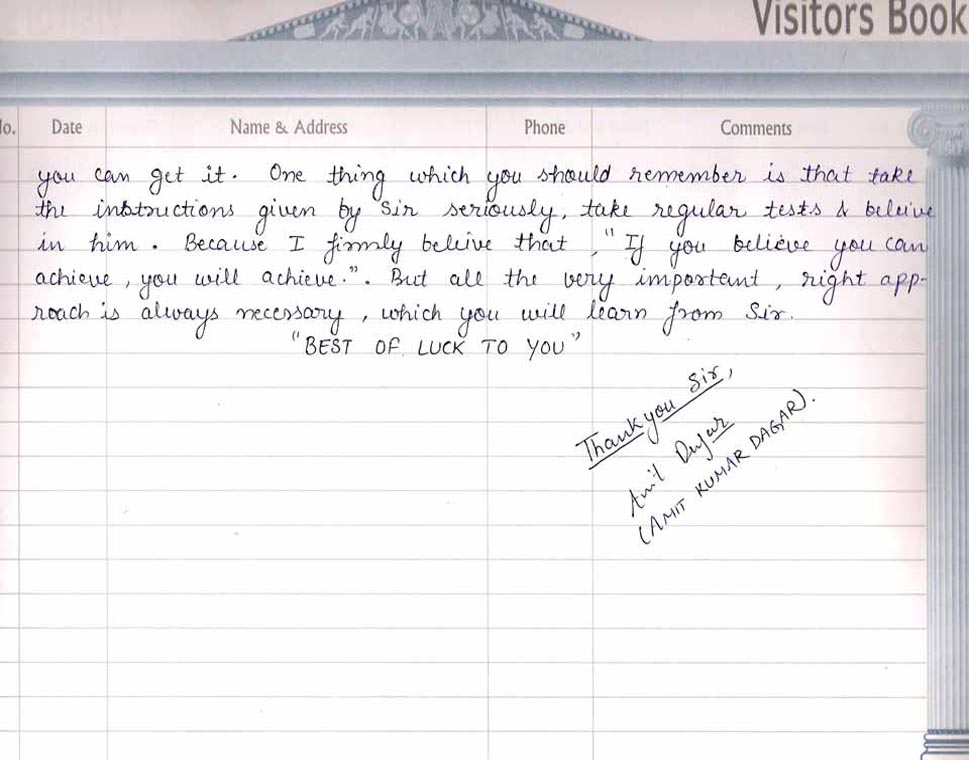 Visitors Book
No. Date Name & Address Phone Comments
you can get it. One thing which you should remember is that take
the instructions given by Sir seriously, take regular tests & beleive
in him. Because I firmly beleive that, "If you believe you can
achieve, you will achieve.". But all the very important, right app-
roach is always necessary, which you will learn from Sir.
"BEST OF LUCK TO YOU"
Thankyou Sir,
Amit Dagar
(AMIT KUMAR DAGAR).